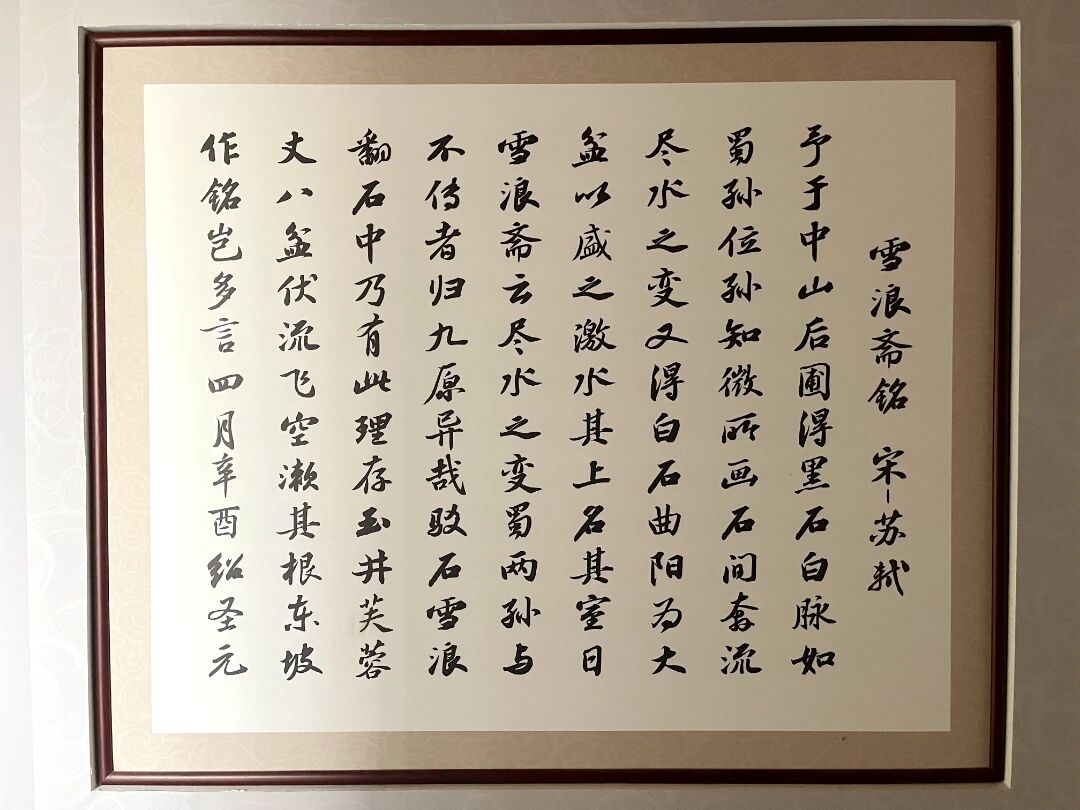 雪浪斋铭 宋-苏轼
予于中山后圃得黑石白脉如
蜀孙位孙知微所画石间奔流
尽水之变又得白石曲阳为大
盆以盛之激水其上名其室曰
雪浪斋云尽水之变蜀两孙与
不传者归九原异哉驳石雪浪
翻石中乃有此理存玉井芙蓉
丈八盆伏流飞空漱其根东坡
作铭岂多言四月辛酉绍圣元